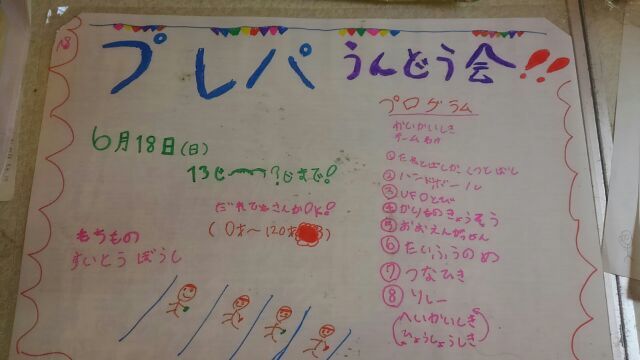 プレパ うんどう会!!
6月18日(日)
13じ〜?じまで!
だれでもさんかOK!
(0才〜120才)
もちもの
すいとう ぼうし
プログラム
かいかいしき
チームわけ
① たれとばし
② ハンドボール
③ UFOとび
④ かりものきょうそう
⑤ おおえんがっせん
⑥ たいふうのめ
⑦ つなひき
⑧ リレー
(へいかいしき
ひょうしょうしき)